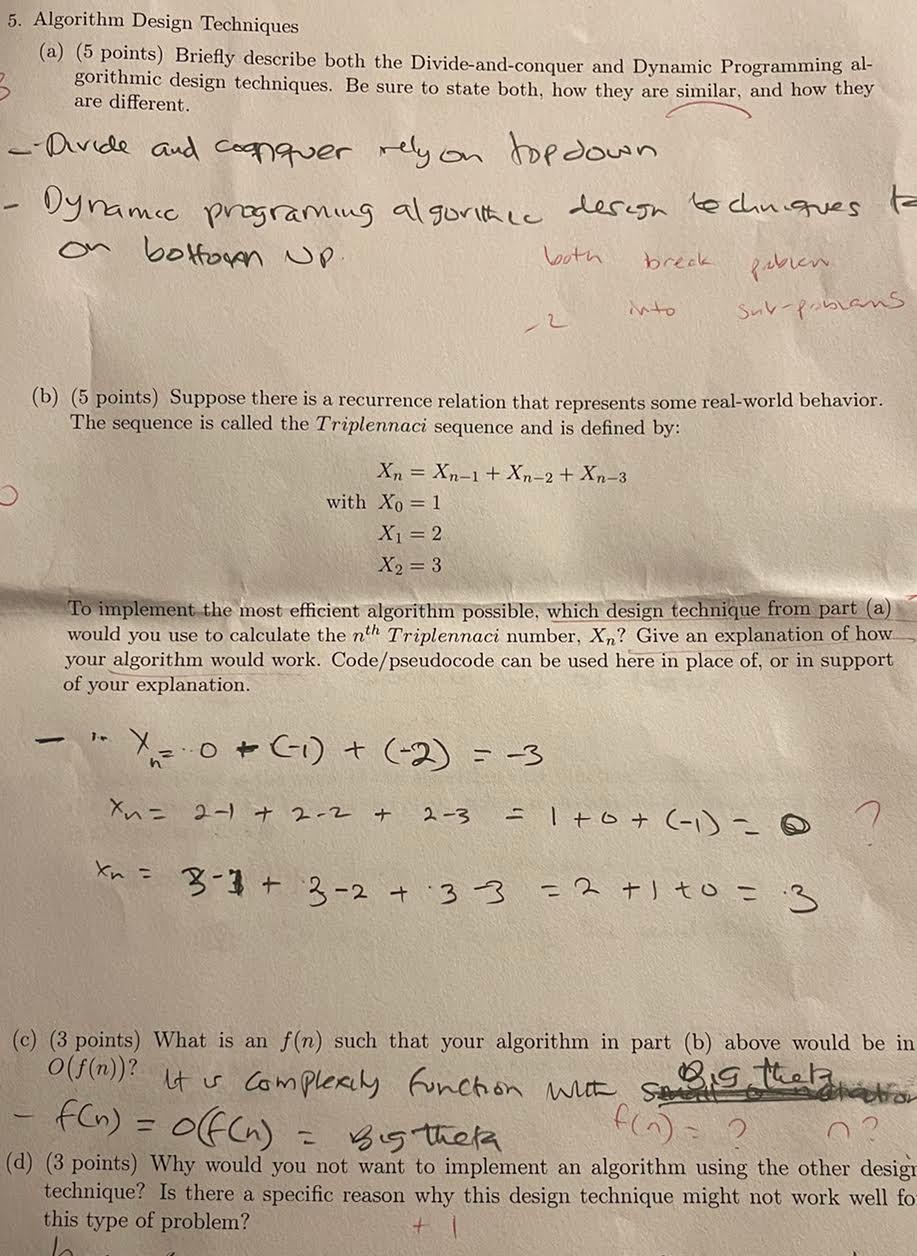 5. Algorithm Design Techniques
(a) (5 points) Briefly describe both the Divide-and-conquer and Dynamic Programming al-
gorithmic design techniques. Be sure to state both, how they are similar, and how they
are different.
- Divide and conquer rely on top down
- Dynamic programing algorithic design techniques
on bottom up.
both break problem
-2 into sub-problems
(b) (5 points) Suppose there is a recurrence relation that represents some real-world behavior.
The sequence is called the Triplennaci sequence and is defined by:
Xn = Xn−1 + Xn−2 + Xn−3
with X0 = 1
X1 = 2
X2 = 3
To implement the most efficient algorithm possible, which design technique from part (a)
would you use to calculate the nth Triplennaci number, Xn? Give an explanation of how
your algorithm would work. Code/pseudocode can be used here in place of, or in support
of your explanation.
- Xn = 0 + (-1) + (-2) = -3
xn = 2-1 + 2-2 + 2-3 = 1 + 0 + (-1) = 0 ?
xn = 3-1 + 3-2 + 3-3 = 2 + 1 + 0 = 3
(c) (3 points) What is an f(n) such that your algorithm in part (b) above would be in
O(f(n))? It is complexity function with Big theta
- f(n) = O(f(n) = Big theta f(n) = ? n?
(d) (3 points) Why would you not want to implement an algorithm using the other design
technique? Is there a specific reason why this design technique might not work well fo
this type of problem? +1